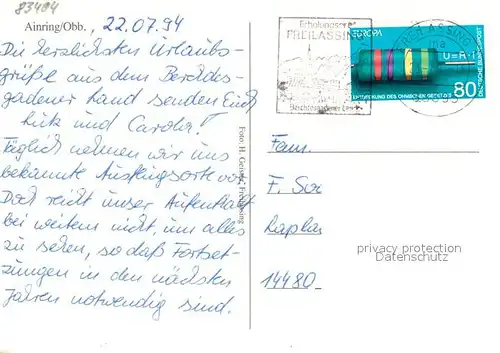 83484
Ainring/Obb., 22.07.94
Die herzlichsten Urlaubs-
grüße aus dem Berchtes-
gadener Land senden Euch
Lutz und Carola!
Täglich nehmen wir uns
bekannte Ausflugsorte vor.
Doch reicht unser Aufenthalt
bei weitem nicht, um alles
zu sehen, so daß Fortset-
zungen in den nächsten
Jahren notwendig sind.
Foto: H. Freilassing
Erholungsort
FREILASSING
Berchtesgadener Land
EUROPA
U=R·I
ENTDECKUNG DES OHMSCHEN GESETZES
80
DEUTSCHE BUNDESPOST
Fam.
F.
14480
privacy protection
Datenschutz